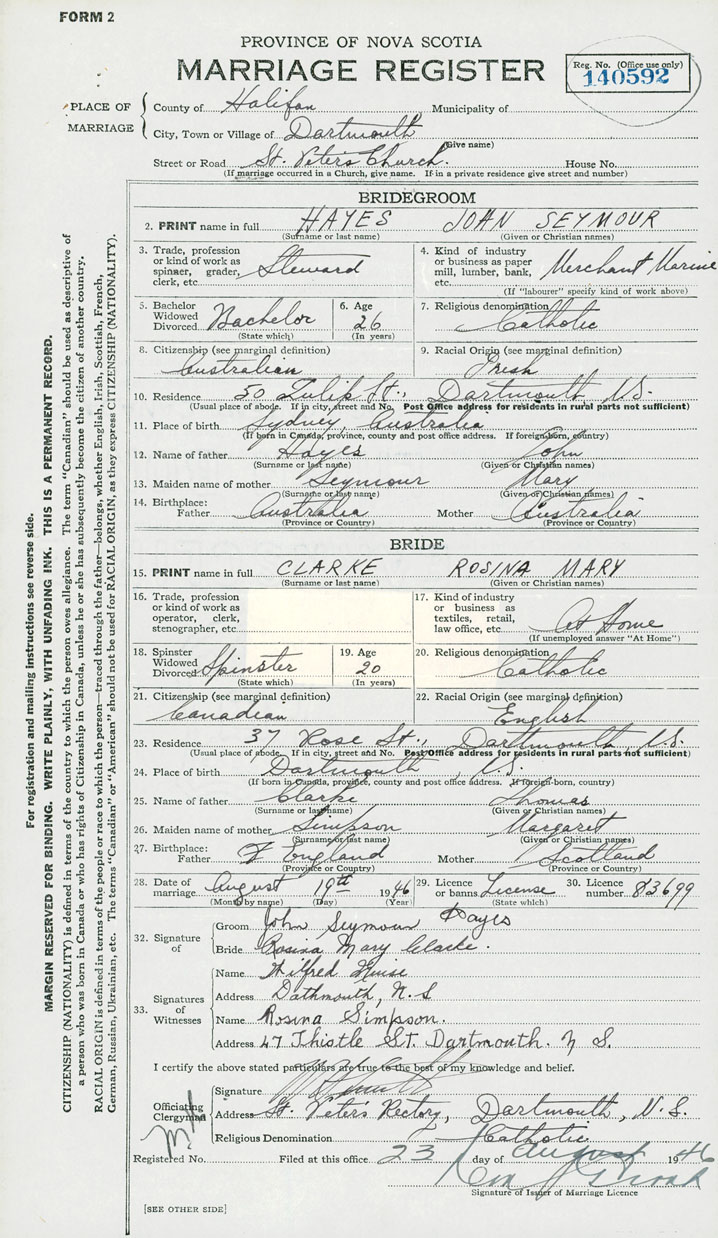 FORM 2
PROVINCE OF NOVA SCOTIA
MARRIAGE REGISTER
Reg. No. (Office use only)
140592
PLACE OF MARRIAGE
County of Halifax Municipality of
City, Town or Village of Dartmouth
(Give name)
Street or Road St. Peter's Church. House No.
(If marriage occurred in a Church, give name. If in a private residence give street and number)
BRIDEGROOM
2. PRINT name in full HAYES JOHN SEYMOUR
(Surname or last name) (Given or Christian names)
3. Trade, profession or kind of work as spinner, grader, clerk, etc. Steward
4. Kind of industry or business as paper mill, lumber, bank, etc. Merchant Marine
(If "labourer" specify kind of work above)
5. Bachelor Widowed Divorced Bachelor (State which)
6. Age 26 (In years)
7. Religious denomination Catholic
8. Citizenship (see marginal definition) Australian
9. Racial Origin (see marginal definition) Irish
10. Residence 50 Tulip St., Dartmouth, N.S.
(Usual place of abode. If in city, street and No. Post Office address for residents in rural parts not sufficient)
11. Place of birth Sydney, Australia
(If born in Canada, province, county and post office address. If foreign-born, country)
12. Name of father Hayes John
(Surname or last name) (Given or Christian names)
13. Maiden name of mother Seymour Mary
(Surname or last name) (Given or Christian names)
14. Birthplace: Father Australia Mother Australia
(Province or Country) (Province or Country)
BRIDE
15. PRINT name in full CLARKE ROSINA MARY
(Surname or last name) (Given or Christian names)
16. Trade, profession or kind of work as operator, clerk, stenographer, etc.
17. Kind of industry or business as textiles, retail, law office, etc. At Home
(If unemployed answer "At Home")
18. Spinster Widowed Divorced Spinster (State which)
19. Age 20 (In years)
20. Religious denomination Catholic
21. Citizenship (see marginal definition) Canadian
22. Racial Origin (see marginal definition) English
23. Residence 37 Rose St., Dartmouth, N.S.
(Usual place of abode. If in city, street and No. Post Office address for residents in rural parts not sufficient)
24. Place of birth Dartmouth, N.S.
(If born in Canada, province, county and post office address. If foreign-born, country)
25. Name of father Clarke Thomas
(Surname or last name) (Given or Christian names)
26. Maiden name of mother Simpson Margaret
(Surname or last name) (Given or Christian names)
27. Birthplace: Father England Mother Scotland
(Province or Country) (Province or Country)
28. Date of marriage August 19th 1946
(Month by name) (Day) (Year)
29. Licence or banns License (State which)
30. Licence number 83699
32. Signature of
Groom John Seymour Hayes
Bride Rosina Mary Clarke.
33. Signatures of Witnesses
Name Wilfred
Address Dathmouth, N.S
Name Rosina Simpson.
Address 47 Thistle ST. Dartmouth. N S.
I certify the above stated particulars are true to the best of my knowledge and belief.
Officiating Clergyman
Signature
Address St. Peter's Rectory, Dartmouth, N.S.
Religious Denomination Catholic
Registered No. Filed at this office 23 day of August 1946
Signature of Issuer of Marriage Licence
[SEE OTHER SIDE]
For registration and mailing instructions see reverse side.
MARGIN RESERVED FOR BINDING. WRITE PLAINLY, WITH UNFADING INK. THIS IS A PERMANENT RECORD.
CITIZENSHIP (NATIONALITY) is defined in terms of the country to which the person owes allegiance. The term "Canadian" should be used as descriptive of
a person who was born in Canada or who has rights of Citizenship in Canada, unless he or she has subsequently become the citizen of another country.
RACIAL ORIGIN is defined in terms of the people or race to which the person—traced through the father—belongs, whether English, Irish, Scottish, French,
German, Russian, Ukrainian, etc. The terms "Canadian" or "American" should not be used for RACIAL ORIGIN, as they express CITIZENSHIP (NATIONALITY).